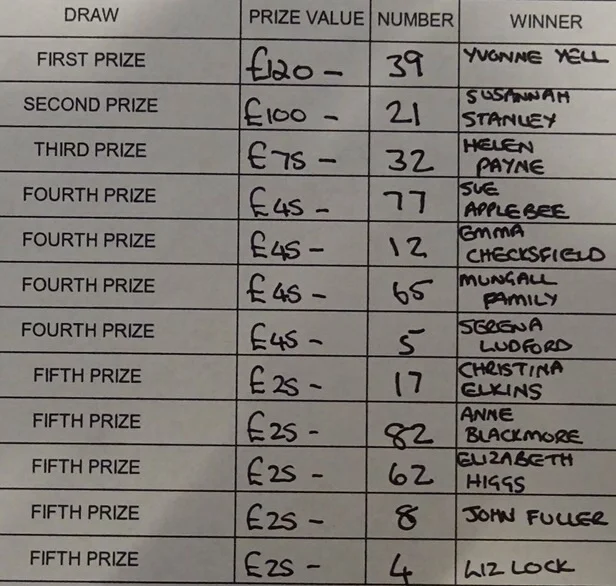 DRAW PRIZE VALUE NUMBER WINNER
FIRST PRIZE £120 - 39 YVONNE YELL
SECOND PRIZE £100 - 21 SUSANNAH
STANLEY
THIRD PRIZE £75 - 32 HELEN
PAYNE
FOURTH PRIZE £45 - 77 SUE
APPLEBEE
FOURTH PRIZE £45 - 12 EMMA
CHECKSFIELD
FOURTH PRIZE £45 - 65 MUNGALL
FAMILY
FOURTH PRIZE £45 - 5 SERENA
LUDFORD
FIFTH PRIZE £25 - 17 CHRISTINA
ELKINS
FIFTH PRIZE £25 - 82 ANNE
BLACKMORE
FIFTH PRIZE £25 - 62 ELIZABETH
HIGGS
FIFTH PRIZE £25 - 8 JOHN FULLER
FIFTH PRIZE £25 - 4 LIZ LOCK